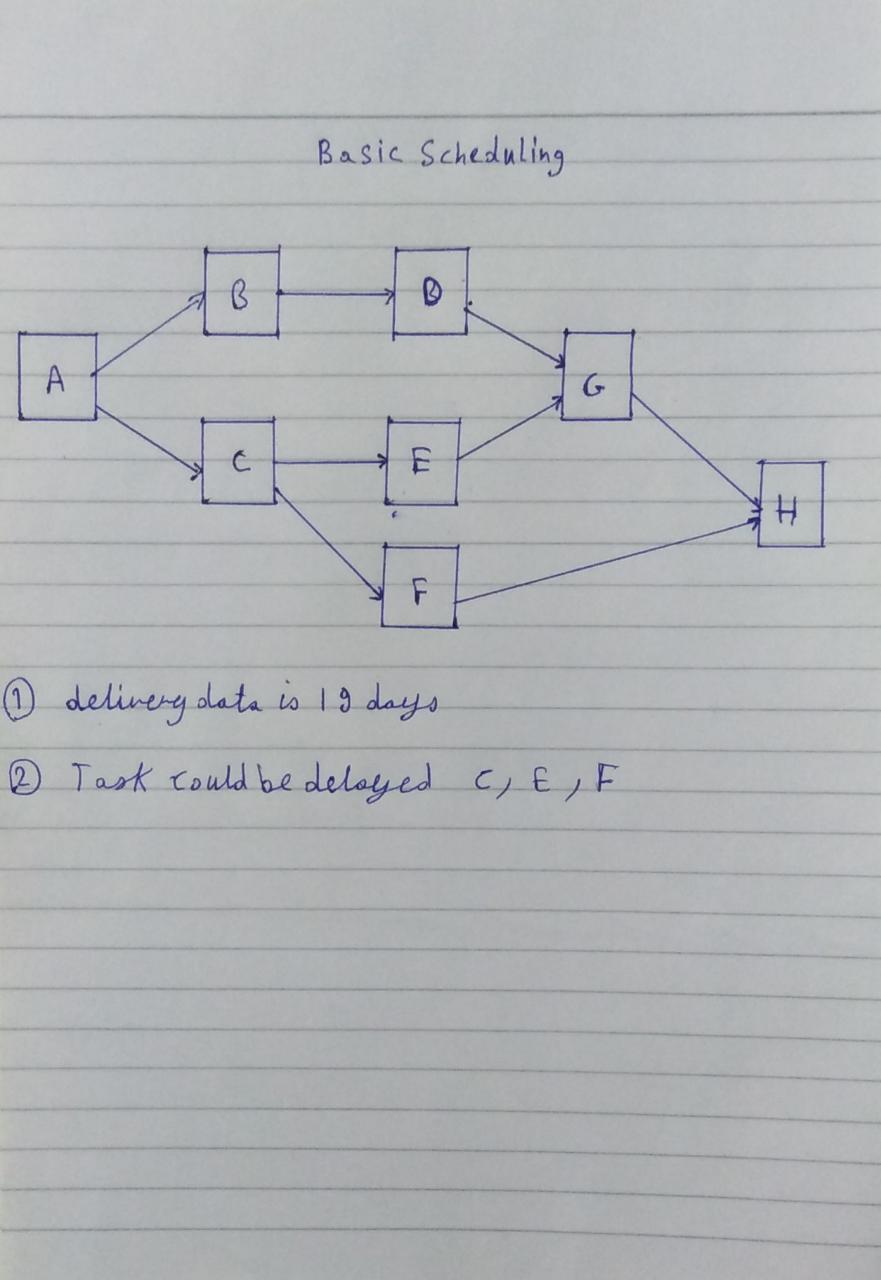 Basic Scheduling
B D
A G
C E
H
F
① delivery data is 19 days
② Task could be delayed C, E, F